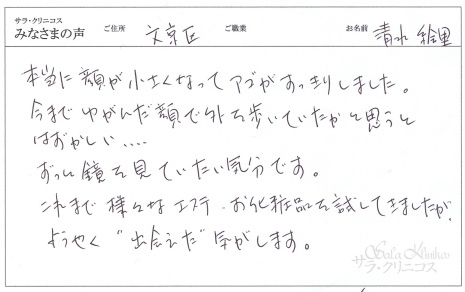 サラ・クリニコス
みなさまの声 ご住所 文京区 ご職業 お名前 青木 絵里
本当に顔が小さくなってアゴがすっきりしました。
今までゆがんだ顔で外を歩いていたかと思うと
はずかしい....
ずっと鏡を見ていたい気分です。
これまで様々なエステ・お化粧品を試してきましたが、
ようやく"出会えた"気がします。
Sala Klinikos
サラ・クリニコス